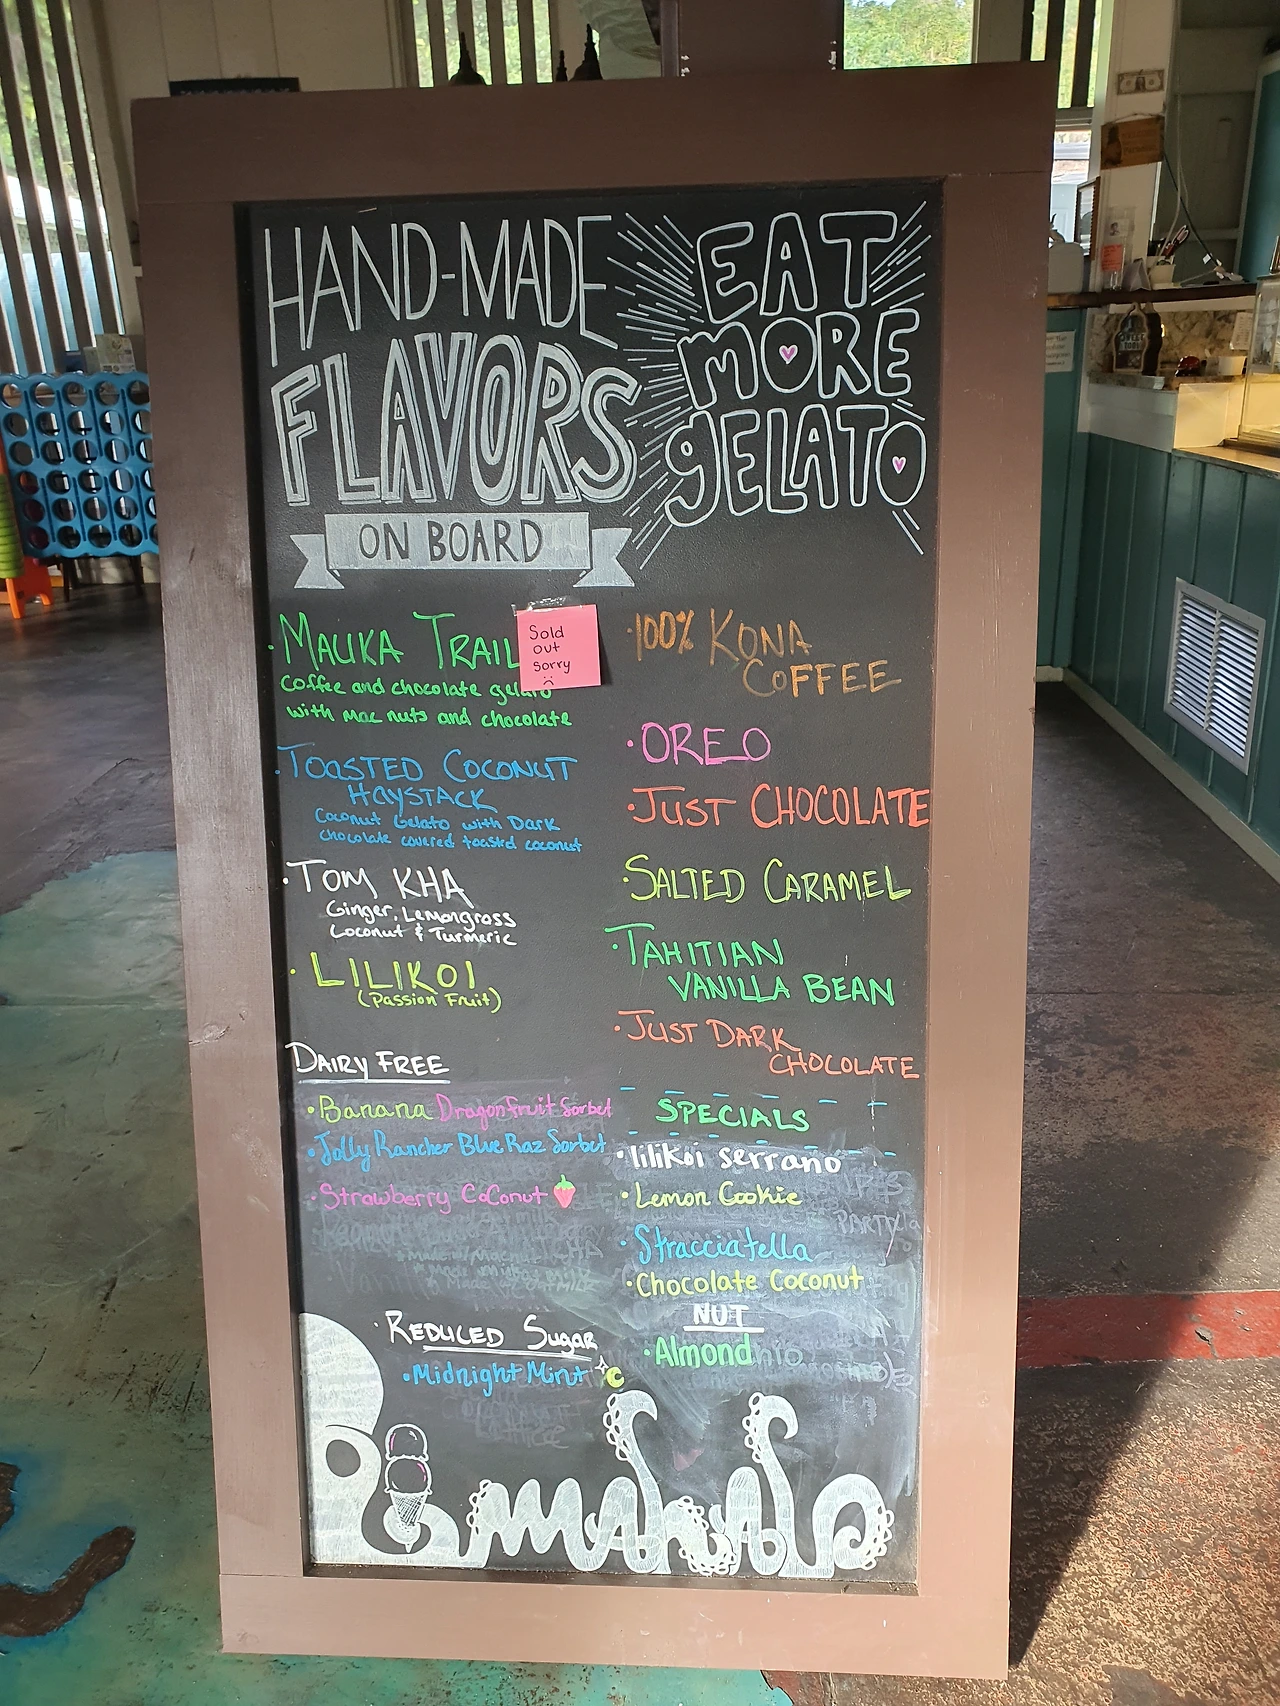 HAND-MADE
FLAVORS
ON BOARD
EAT
MORE
GELATO
·MAUKA TRAIL
Sold
out
sorry
coffee and chocolate gelato
with mac nuts and chocolate
·TOASTED COCONUT
HAYSTACK
Coconut Gelato with Dark
chocolate covered toasted coconut
·TOM KHA
Ginger, Lemongrass
Coconut & Turmeric
·LILIKOI
(Passion Fruit)
DAIRY FREE
·Banana Dragonfruit Sorbet
·Jolly Rancher Blue Raz Sorbet
·Strawberry CoConut
·REDUCED Sugar
·Midnight Mint
·100% KONA
COFFEE
·OREO
·JUST CHOCOLATE
·SALTED CARAMEL
·TAHITIAN
VANILLA BEAN
·JUST DARK
CHOCOLATE
SPECIALS
·lilikoi serrano
·Lemon Cookie
·Stracciatella
·Chocolate Coconut
NUT
·Almond
mahalo